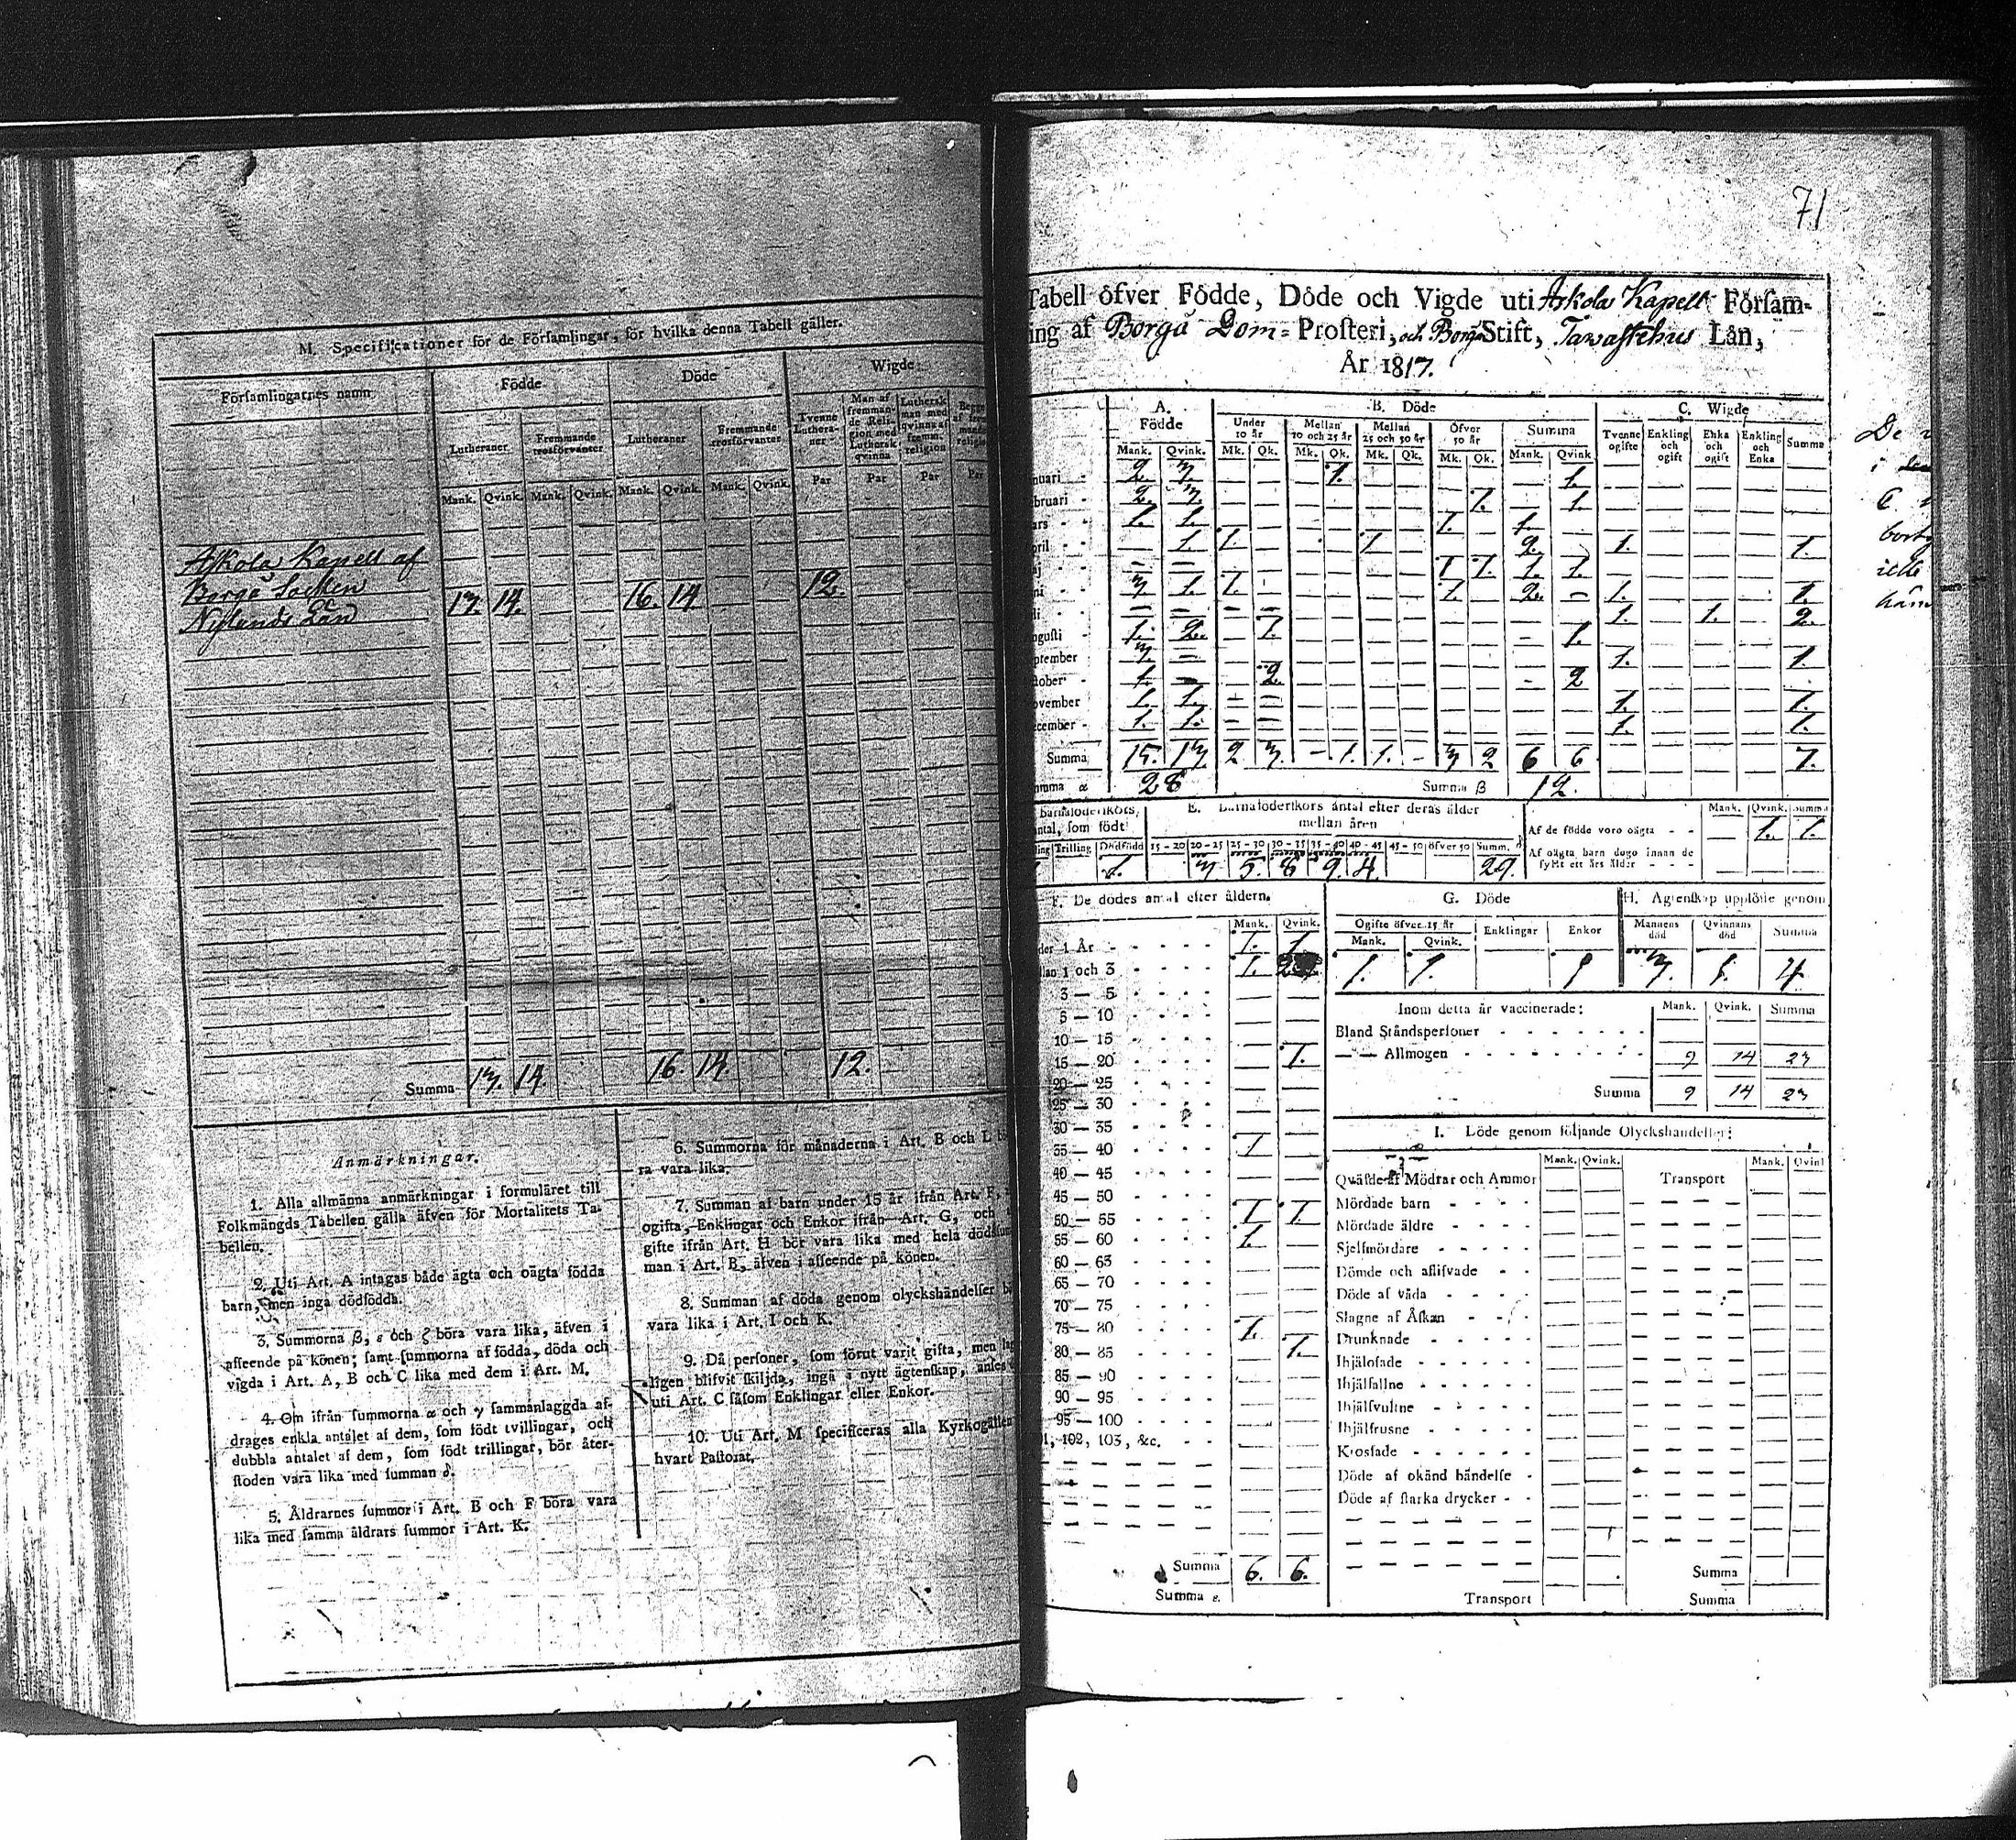 M. Specificationer för de Församlingar, för hvilka denna Tabell gäller.
Församlingarnes namn
Födde
Döde
Wigde
Lutheraner
Fremmande trosförvanter
Lutheraner
Fremmande trosförvanter
Tvenne Lutheraner
Man af fremmande Religion med Luthersk qvinna
Luthersk man med qvinna af fremm. religion
Mank. Qvink. Mank. Qvink. Mank. Qvink. Mank. Qvink. Par Par Par Par
Askola Kapell af
Borgå Socken
Nylands Län
13. 14. 16. 14 12.
Summa 13. 14. 16 14. 12.
Anmärkningar.
1. Alla allmänna anmärkningar i formuläret till
Folkmängds Tabellen gälla äfven för Mortalitets Ta-
bellen.
2. Uti Art. A intagas både ägta och oägta födda
barn, men inga dödfödda.
3. Summorna β, ε och ζ böra vara lika, äfven i
afseende på könen; samt summorna af födda, döda och
vigda i Art. A, B och C lika med dem i Art. M.
4. Om ifrån summorna α och γ sammanlaggda af-
drages enkla antalet af dem, som födt tvillingar, och
dubbla antalet af dem, som födt trillingar, bör åter-
stoden vara lika med summan δ.
5. Åldrarnes summor i Art. B och F böra vara
lika med samma åldrars summor i Art. K.
6. Summorna för månaderna i Art. B och L
ra vara lika.
7. Summan af barn under 15 år ifrån Art. F,
ogifta, Enklingar och Enkor ifrån Art. G, och
gifte ifrån Art. H bör vara lika med hela
man i Art. B, äfven i afseende på könen.
8. Summan af döda genom olyckshändelser
vara lika i Art. I och K.
9. Då personer, som förut varit gifta, men
ligen blifvit skiljda, ingå i nytt ägtenskap, anses
uti Art. C såsom Enklingar eller Enkor.
10. Uti Art. M specificeras alla
hvart Pastorat.
71
Tabell öfver Födde, Döde och Vigde uti Askola Kapell Församling
af Borgå Dom-Prosteri, och Borgå Stift, Tawastehus Län,
År 1817.
A. Födde
B. Döde
C. Wigde
Under 10 år
Mellan 10 och 25 år
Mellan 25 och 50 år
Öfver 50 år
Summa
Tvenne ogifte
Enkling och ogift
Enka och ogift
Enkling och Enka
Summa
Mank. Qvink. Mk. Qk. Mk. Qk. Mk. Qk. Mk. Qk. Mank. Qvink
nuari 2. 3. 1. 1.
bruari 2. 3. 1. 1
ars 1. 1. 1. 1.
pril 1. 1. 1 2. 1. 1.
aj 1 1. 1. 1.
ni 3 1. 1. 1. 2. 1. 1.
li 1. 1. 2.
ugusti 1. 2. 1. 1.
ptember 3. 1. 1.
tober 1. 2. 2
ovember 1. 1. 1. 1.
cember 1. 1. 1. 1.
Summa 15. 13 2 3. 1. 1. 3 2 6 6 7.
Summa α 28 Summa β 12.
E. Barnaföderskors antal efter deras ålder
mellan åren
15-20 20-25 25-30 30-35 35-40 40-45 45-50 öfver 50 Summ. δ
Trilling Dödfödd
1. 3 5. 8 9. 4. 29.
Mank. Qvink. Summa
Af de födde voro oägta 1. 1.
Af oägta barn dogo innan de
fyllt ett års ålder
F. De dödes antal efter åldern.
Mank. Qvink.
der 1 År 1. 1.
llan 1 och 3 1. 2
3 — 5
5 — 10
10 — 15
15 — 20 1.
20 — 25
25 — 30
30 — 35
35 — 40 1
40 — 45
45 — 50
50 — 55 1 1.
55 — 60 1.
60 — 65
65 — 70
70 — 75
75 — 80 1.
80 — 85 1.
85 — 90
90 — 95
95 — 100
102, 103, &c.
Summa 6. 6.
Summa ε.
G. Döde
Ogifte öfver 15 år
Enklingar
Enkor
Mank. Qvink.
1. 1. 1
H. Ägtenskap upplöste genom
Mannens död
Qvinnans död
Summa
3. 1. 4.
Inom detta år vaccinerade:
Mank. Qvink. Summa
Bland Ståndspersoner
— Allmogen 9 14 23
Summa 9 14 23
I. Döde genom följande Olyckshändelser:
Mank. Qvink. Mank. Qvink
Qväfde af Mödrar och Ammor Transport
Mördade barn
Mördade äldre
Sjelfmördare
Dömde och aflifvade
Döde af våda
Slagne af Åskan
Drunknade
Ihjälosade
Ihjälfallne
Ihjälsvultne
Ihjälfrusne
Krossade
Döde af okänd händelse
Döde af starka drycker
Summa
Transport Summa